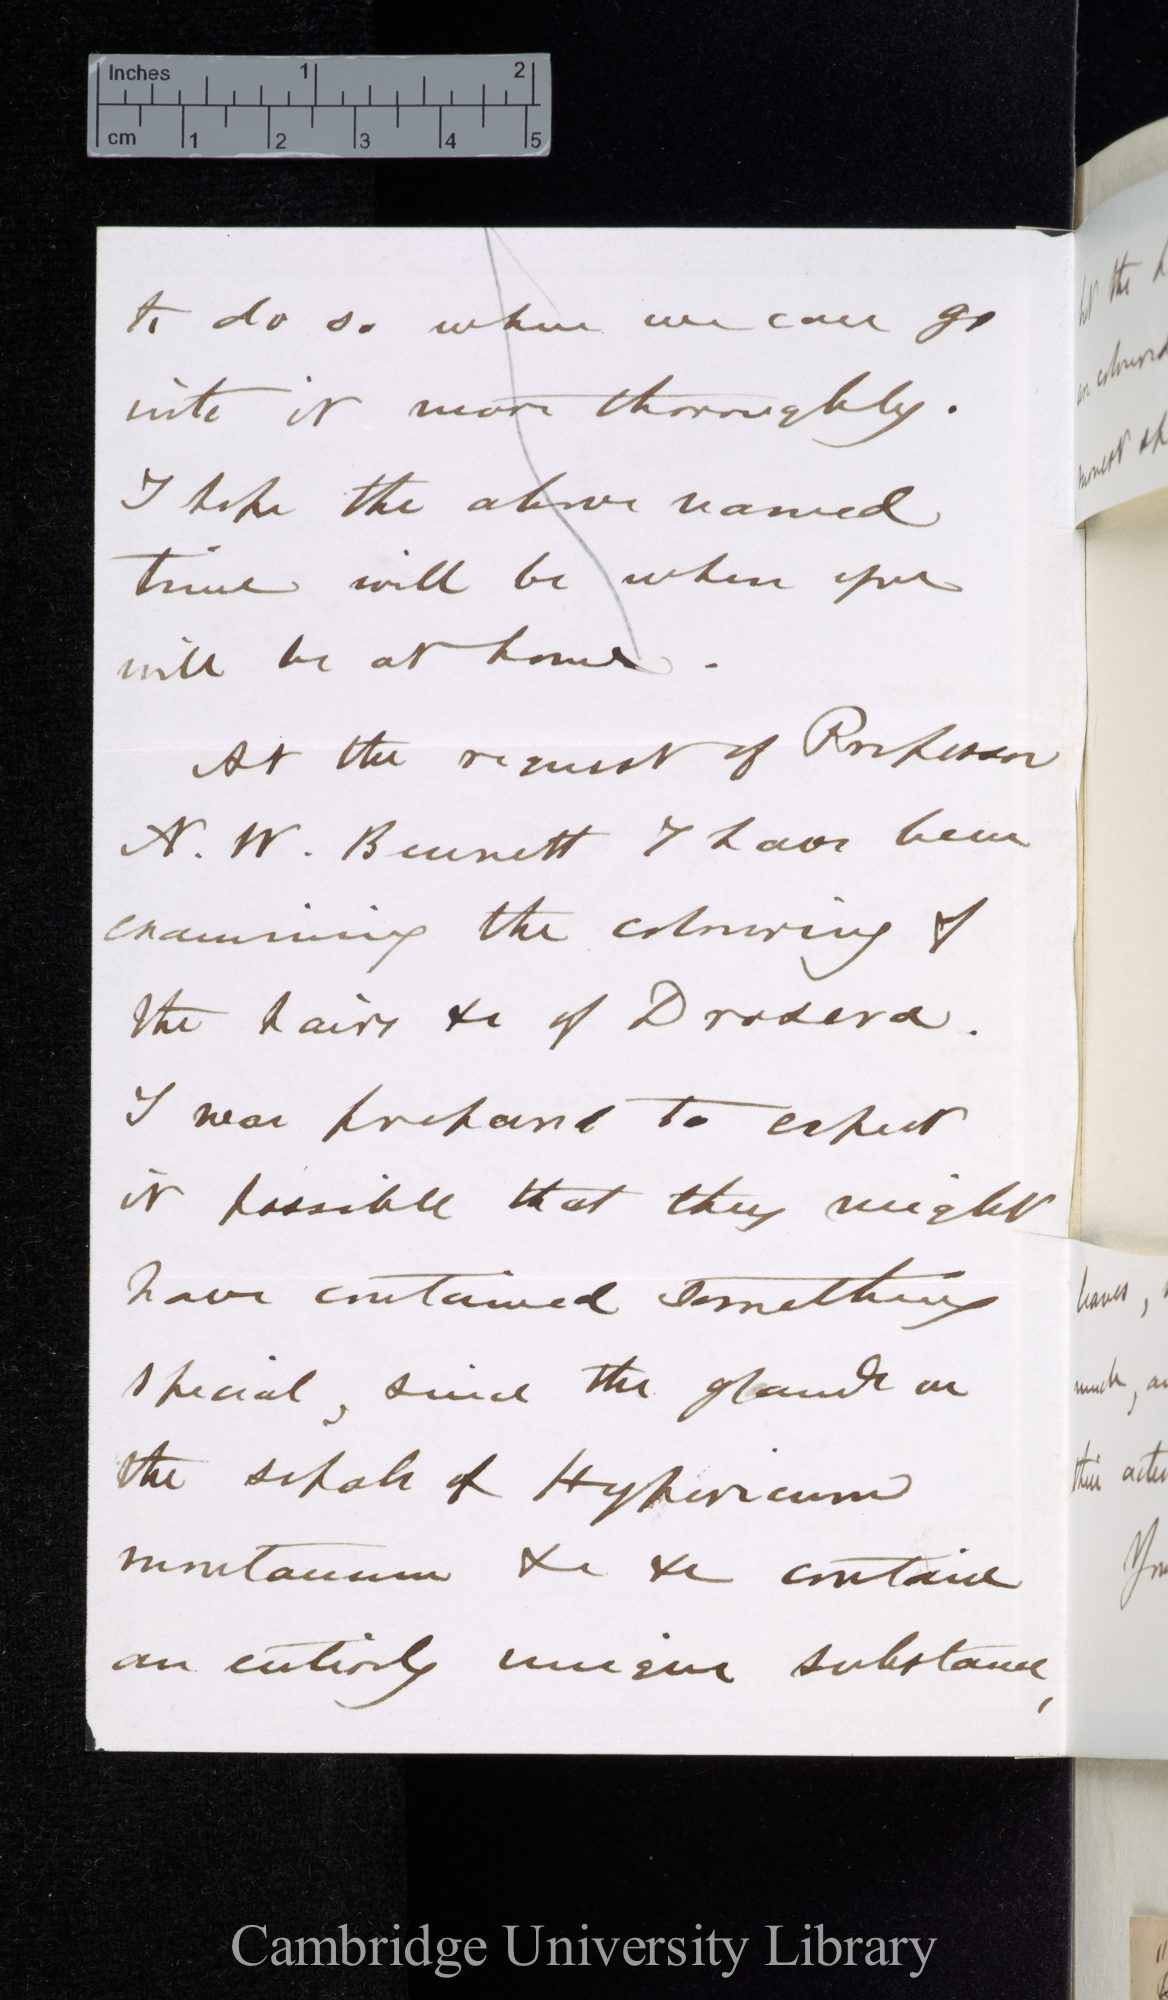 Inches 1 2
cm 1 2 3 4 5
to do so when we can go
into it more thoroughly.
I hope the above named
time will be when you
will be at home.
At the request of Professor
A. W. Bennett I have been
examining the colouring of
the hairs &c of Drosera.
I was prepared to expect
it possible that they might
have contained something
special, since the glands on
the sepals of Hypericum
montanum &c &c contain
an entirely unique substance,
the
leaves,
much,
their
Cambridge University Library